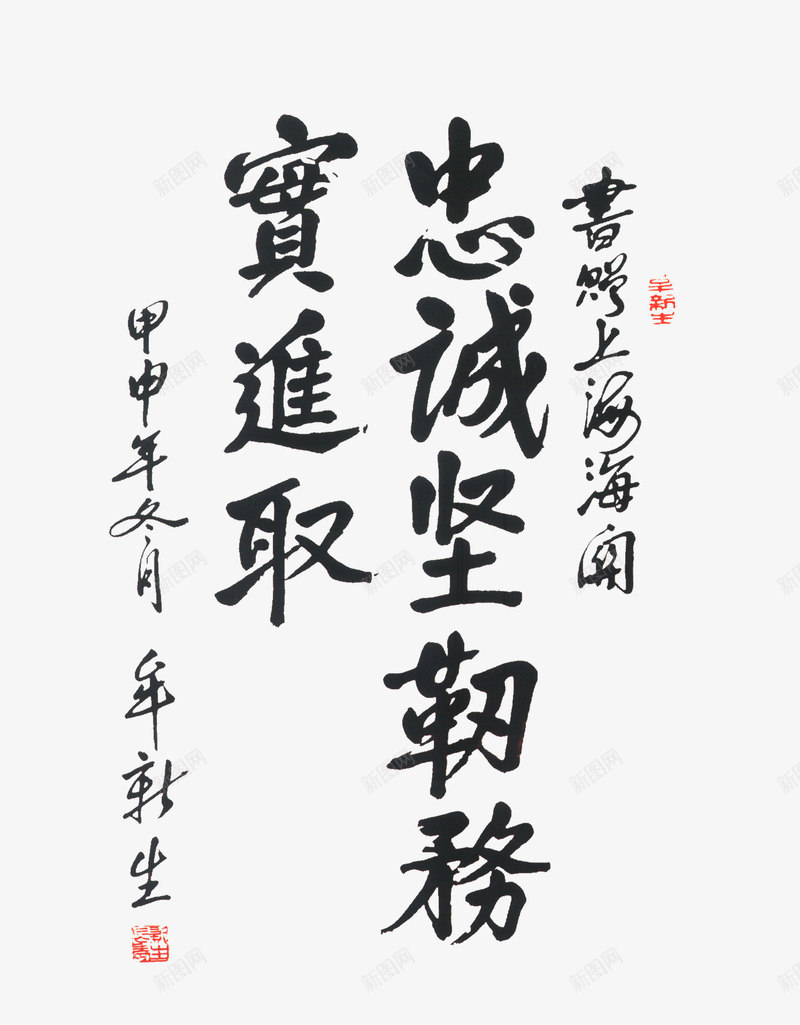 書赠上海海関
牟新生
忠诚坚靭務
實進取
甲申年冬月 牟新生
新图网